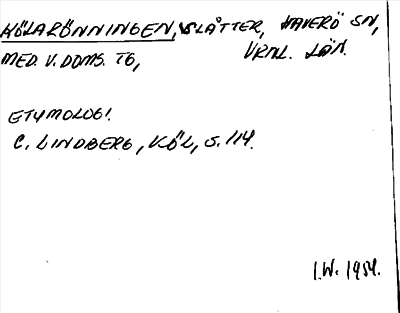 KÖLARÖNNINGEN, SLÅTTER, HAVERÖ SN,
MED. V. DOMS. TG, VRNL. LÄN.
ETYMOLOGI.
C. LINDBERG, KÖL, S. 114.
I.W. 1954.